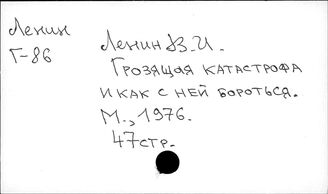 Ленин
Г-86
Ленин В.И.
Грозящая катастрофа
и как с ней бороться.
М., 1976.
47стр.